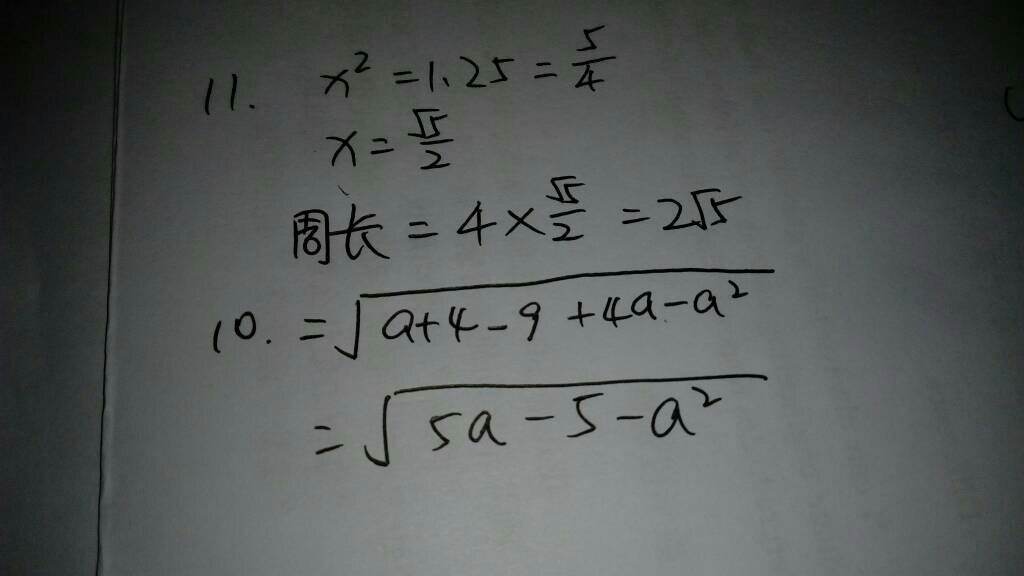 11. x² = 1.25 = 5/4
x = √5/2
周长 = 4 × √5/2 = 2√5
10. = √(a+4-9+4a-a²)
= √(5a-5-a²)